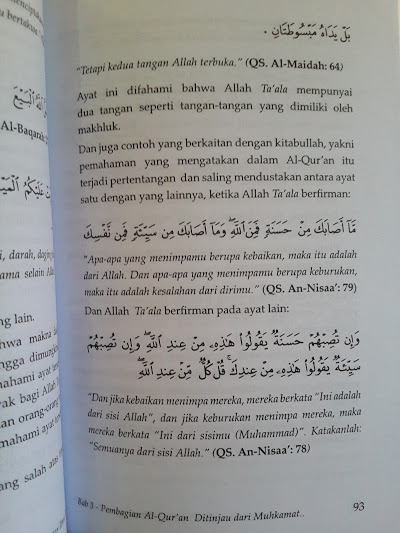 بَلْ يَدَاهُ مَبْسُوطَتَانِ .
"Tetapi kedua tangan Allah terbuka." (QS. Al-Maidah: 64)
Ayat ini difahami bahwa Allah Ta'ala mempunyai
dua tangan seperti tangan-tangan yang dimiliki oleh
makhluk.
Dan juga contoh yang berkaitan dengan kitabullah, yakni
pemahaman yang mengatakan dalam Al-Qur'an itu
terjadi pertentangan dan saling mendustakan antara ayat
satu dengan yang lainnya, ketika Allah Ta'ala berfirman:
مَّآ أَصَابَكَ مِنْ حَسَنَةٍ فَمِنَ ٱللَّهِ ۖ وَمَآ أَصَابَكَ مِن سَيِّئَةٍ فَمِن نَّفْسِكَ
"Apa-apa yang menimpamu berupa kebaikan, maka itu adalah
dari Allah. Dan apa-apa yang menimpamu berupa keburukan,
maka itu adalah kesalahan dari dirimu." (QS. An-Nisaa': 79)
Dan Allah Ta'ala berfirman pada ayat lain:
وَإِن تُصِبْهُمْ حَسَنَةٌ يَقُولُوا۟ هَٰذِهِۦ مِنْ عِندِ ٱللَّهِ ۖ وَإِن تُصِبْهُمْ
سَيِّئَةٌ يَقُولُوا۟ هَٰذِهِۦ مِنْ عِندِكَ ۚ قُلْ كُلٌّ مِّنْ عِندِ ٱللَّهِ ۖ
"Dan jika kebaikan menimpa mereka, mereka berkata "Ini adalah
dari sisi Allah", dan jika keburukan menimpa mereka, maka
mereka berkata "Ini dari sisimu (Muhammad)". Katakanlah:
"Semuanya dari sisi Allah." (QS. An-Nisaa': 78)
Bab 3 - Pembagian Al-Qur'an Ditinjau dari Muhkamat..
93
Al-Baqarah:
i, darah, daging
ama selain Allah
ng lain.
wa makna
ngga dimung
ahami ayat
yak bagi Allah
an orang-orang
mahami ayat
ang salah atas